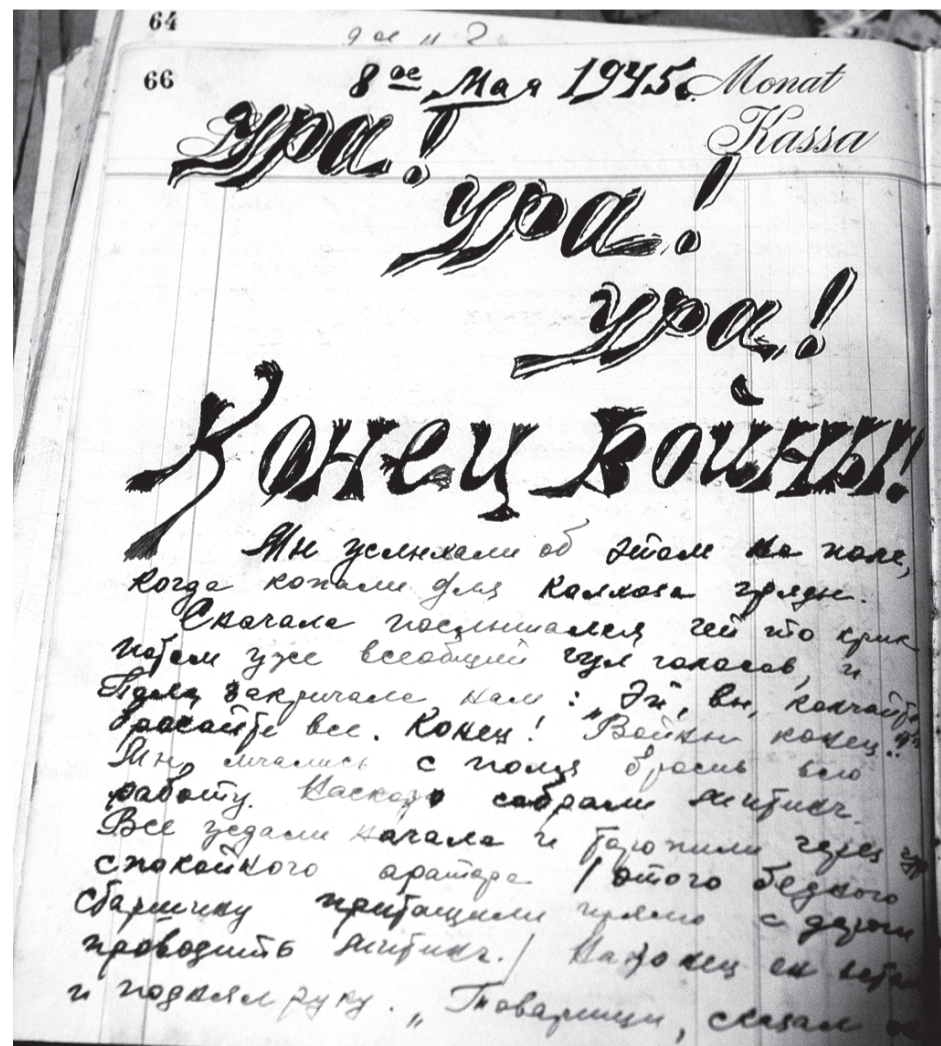 64
66
8ое Мая 1945г. Monat
Kassa
Ура!
Ура!
Ура!
Конец войны!
Мы услыхали об этом на поле,
когда копали для колхоза гряды.
Сначала послышался чей то крик
потом уже всеобщий гул голосов, и
закричала нам: Эй, вы, кончайте,
бросайте все. Конец! "Войны конец!"
Мы, мчались с поля бросив всю
работу. Наскоро собрали митинг.
Все ждали начала и торопили через
спокойного оратора / этого бедного
притащили прямо с дороги
проводить митинг. / Наконец он встал
и поднял руку. „Товарищи, сказал он